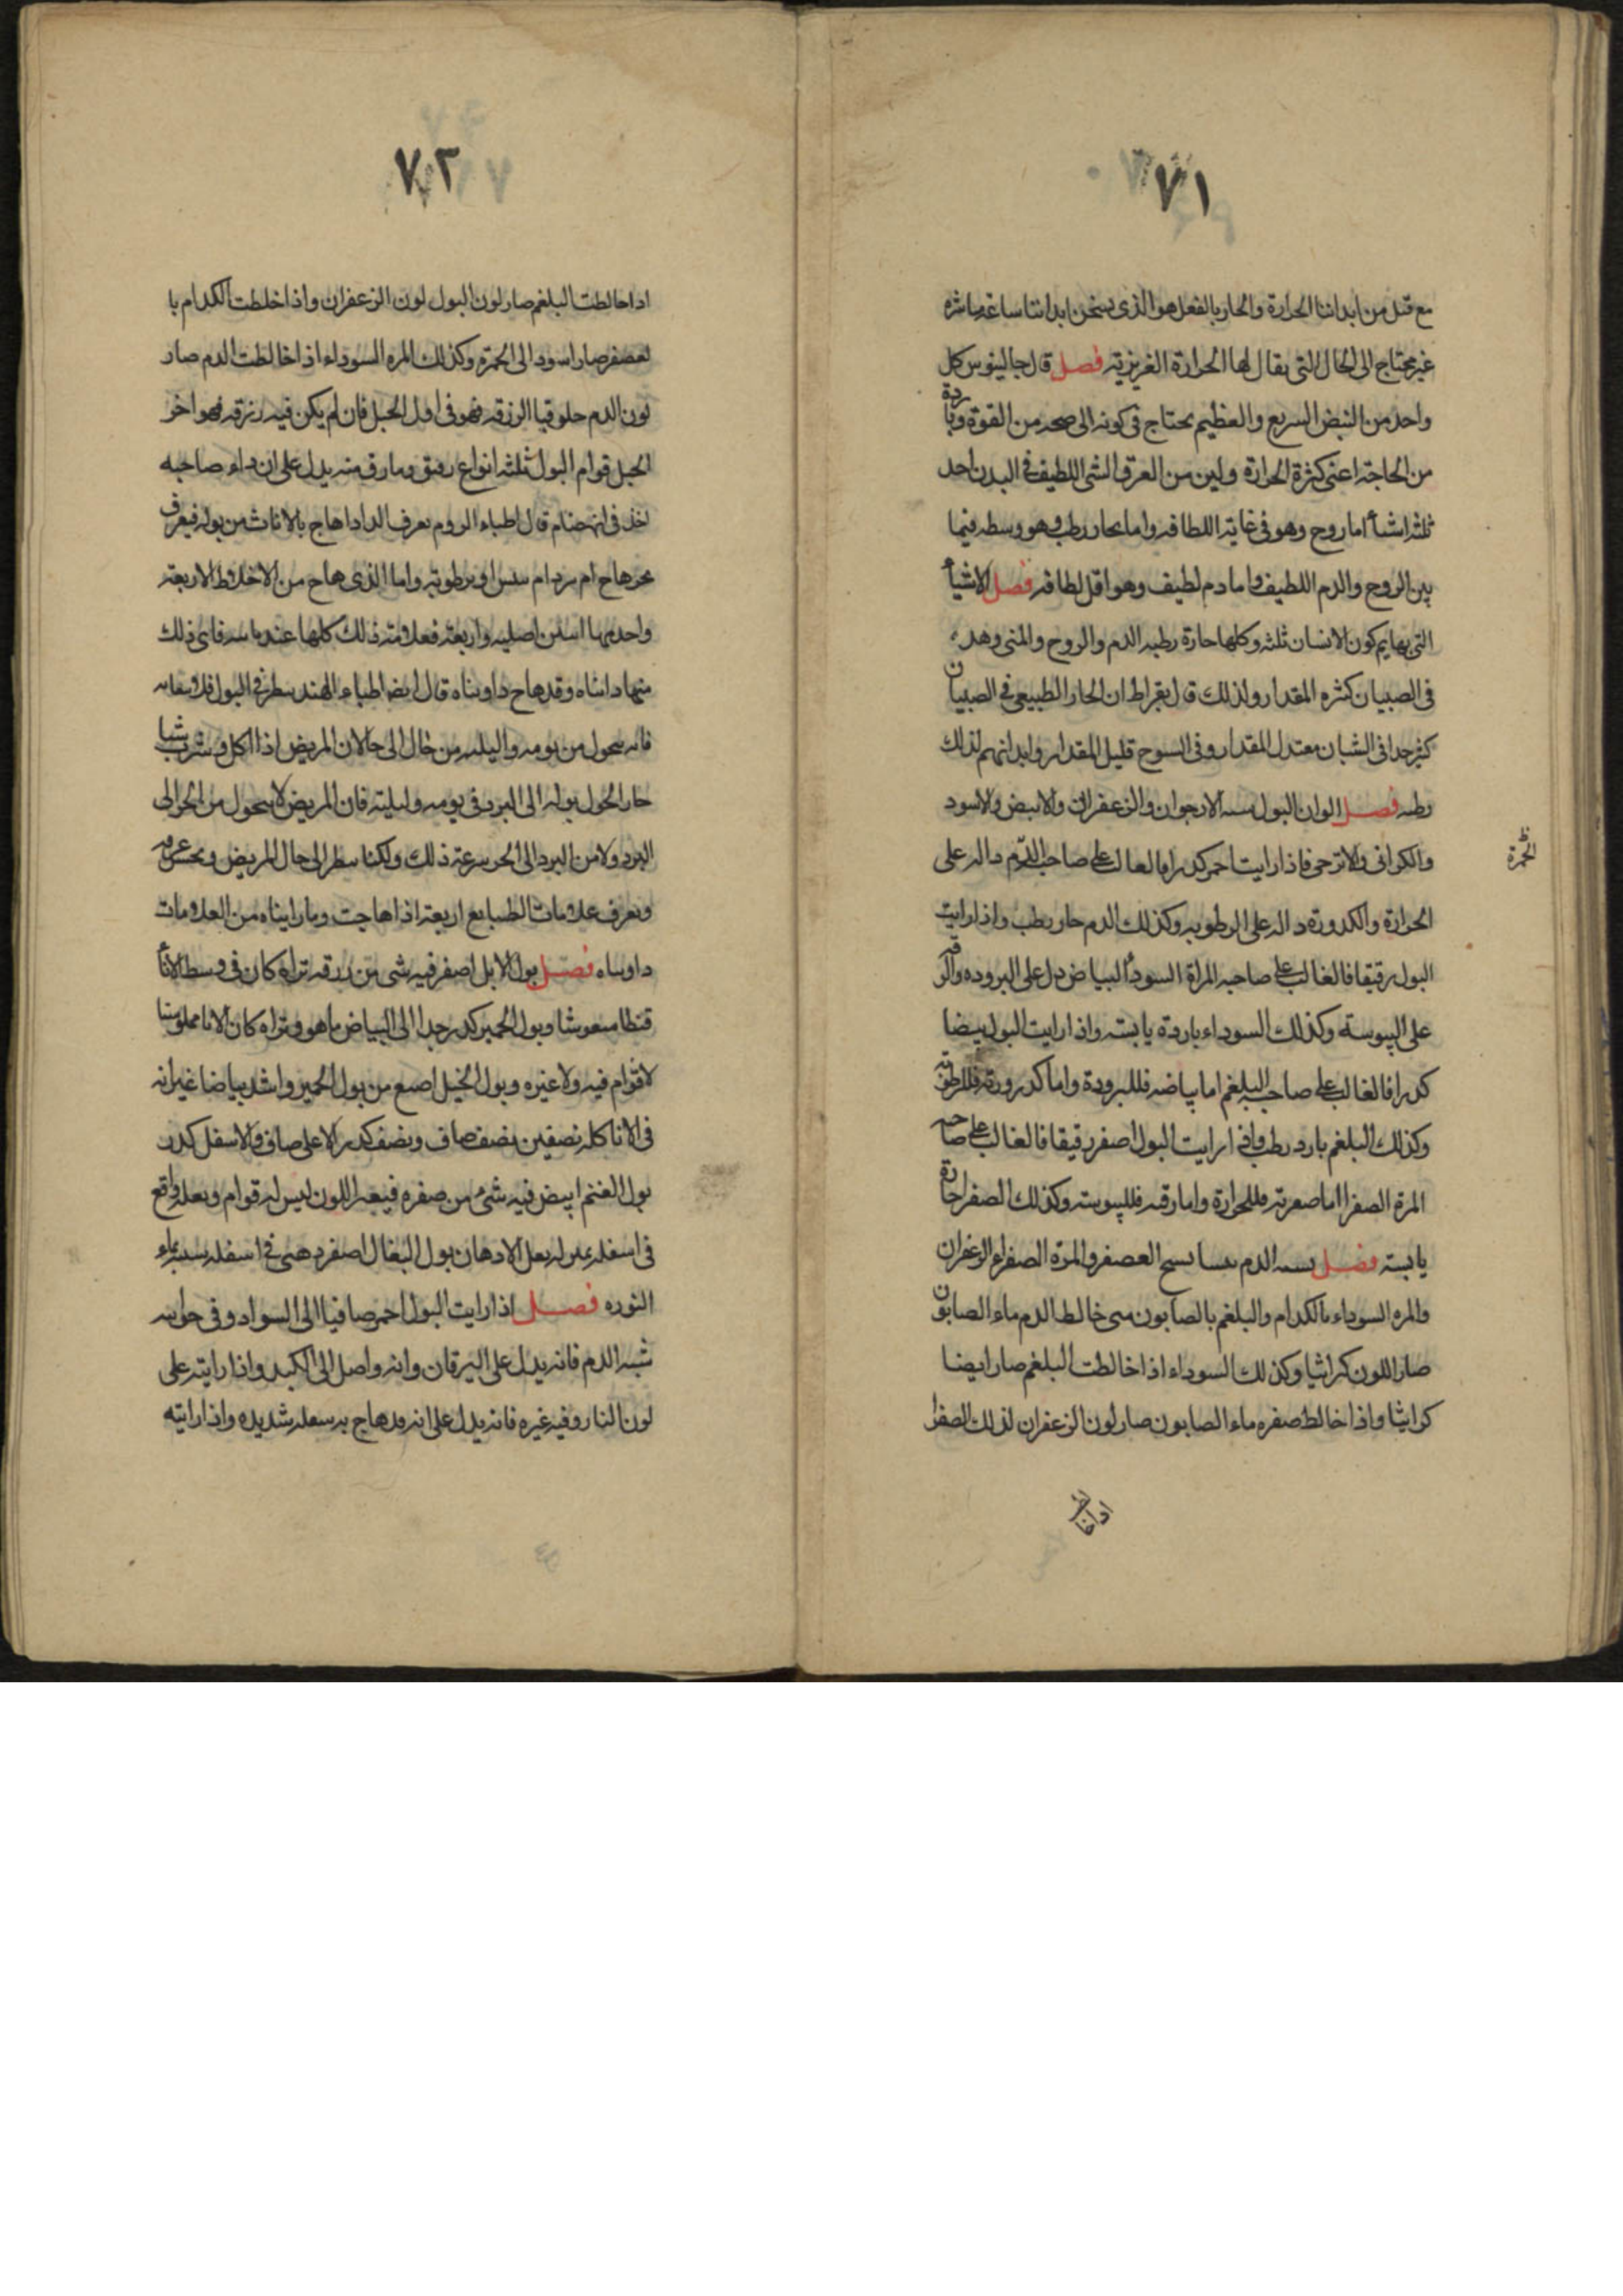 ٧١
مع قتل من ابداننا الحرارة والحار بالفعل هو الذى يسخن ابداننا ساعة
غير محتاج الى الحال التى يقال لها الحرارة الغريزية فصل قال جالينوس كل
واحد من النبض السريع والعظيم يحتاج فى كونه الى صحه من القوة وبا ردة
من الحاجة اعنى كثرة الحرارة ولين من العرق الشى اللطيف فى البدن احد
ثلثه اشيأ اما روح وهو فى غاية اللطافه واما بحار رطب وهو وسطه فيما
بين الروح والدم اللطيف واما دم لطيف وهو اقل لطافه فصل الاشيأ
التى بها يكون الانسان ثلثه وكلها حارة رطبه الدم والروح والمنى وهده
فى الصبيان كثره المقدار ولذلك قال بقراط ان الحار الطبيعى فى الصبيان
كثر جدا فى الشبان معتدل المقدار وفى السوح قليل المقدار وابدانهم لذلك
رطبه فصل الوان البول سته الارجوان والزعفران والابيض والاسود
والكراثى والاترجى فاذا رايت احمر كدرا فالغالب على صاحبه الدم داله على
الحمرة
الحرارة والكدورة داله على الرطوبه وكذلك الدم حار رطب واذا رايت
البول رقيقا فالغالب على صاحبه المراة السودأ البياض دل على البروده والرقه
على اليبوسة وكذلك السوداء باردة يابسته واذا رايت البول بيضا
كدرا فالغالب على صاحبه البلغم اما بياضه فللبرودة واما كدرورته فللرطوبه
وكذلك البلغم بارد رطب واذا رايت البول اصفر رقيقا فالغالب على صاحبه
المرة الصفرا اما صعرته فللحرارة واما رقته فلليبوسته وكذلك الصفرا حارة
يابسته فصل الدم العصفر والمرة الصفراء الزعفران
والمره السوداء بالكدام والبلغم بالصابون متى خالط الدم ماء الصابون
صار اللون كراثيا وكذلك السوداء اذا خالطت البلغم صار ايضا
كراثيا واذا خالط صفره ماء الصابون صار لون الزعفران لذلك الصفرا
اذا خالطت
٧٢
اذا خالطت البلغم صار لون البول لون الزعفران واذا خلطت الكدام با
لعصفر صار اسود الى الحمرة وكذلك المره السوداء اذا خالطت الدم صار
لون الدم حلوقيا الزرقه فهو فى اول الحبل فان لم يكن فيه زرقه فهو اخر
الحبل قوام البول ثلثه انواع رقيق وما رق منه يدل على ان داء صاحبه
اخذ فى انهضام قال اطباء الروم يعرف الدا اذا هاج بالاناث من بوله فيعرف
بحر هاج ام ببرد ام بيبس او برطوبة واما الذى هاج من الاخلاط الاربعة
واحد اصليه واربعة فعلامته ذلك كلها عند فاى ذلك
منها داينناه وقد هاج داويناه قال ايضا اطباء الهند ينظر فى البول
فانه يتحول من يومه والليله من خال الى حالان المريض اذا اكل وشرب شيا
حار الحول بوله الى البرد فى يومه وليليته فان المريض لا يتحول من الحر الى
البرد ولا من البرد الى الحر سرعة ذلك ولكنا ننظر الى حال المريض ونجس عرقه
ونعرف علامات الطبايع اربعة اذا هاجت وما رايناه من العلامات
داويناه فصل بول الابل اصفر فيه شى من زرقه تراه كان فى وسط الانأ
قنطا منعوشا وبول الحمير كدر جدا الى البياض ما هو وتراه كان الانا مملو منيا
لا قوام فيه ولا غيره وبول الخيل اصبع من بول الحمير واشد بياضا غير انه
فى الانا كله نصفين نصف صاف ونصف كدر الاعلى صاف والاسفل كدر
بول الغنم ابيض فيه شىء من صفره فيه اللون ليس له قوام وبعله واقع
فى اسفله بمنزله بعل الادهان بول البغال اصفر دهنى فى اسفله بماء
النوره فصل اذا رايت البول احمر صافيا الى السواد وفى حوانيه
شبه الدم فانه يدل على اليرقان وانه واصل الى الكبد واذا رايته على
لون النار وفيه غيره فانه يدل على انه قد هاج به سعله شديده واذا رايته